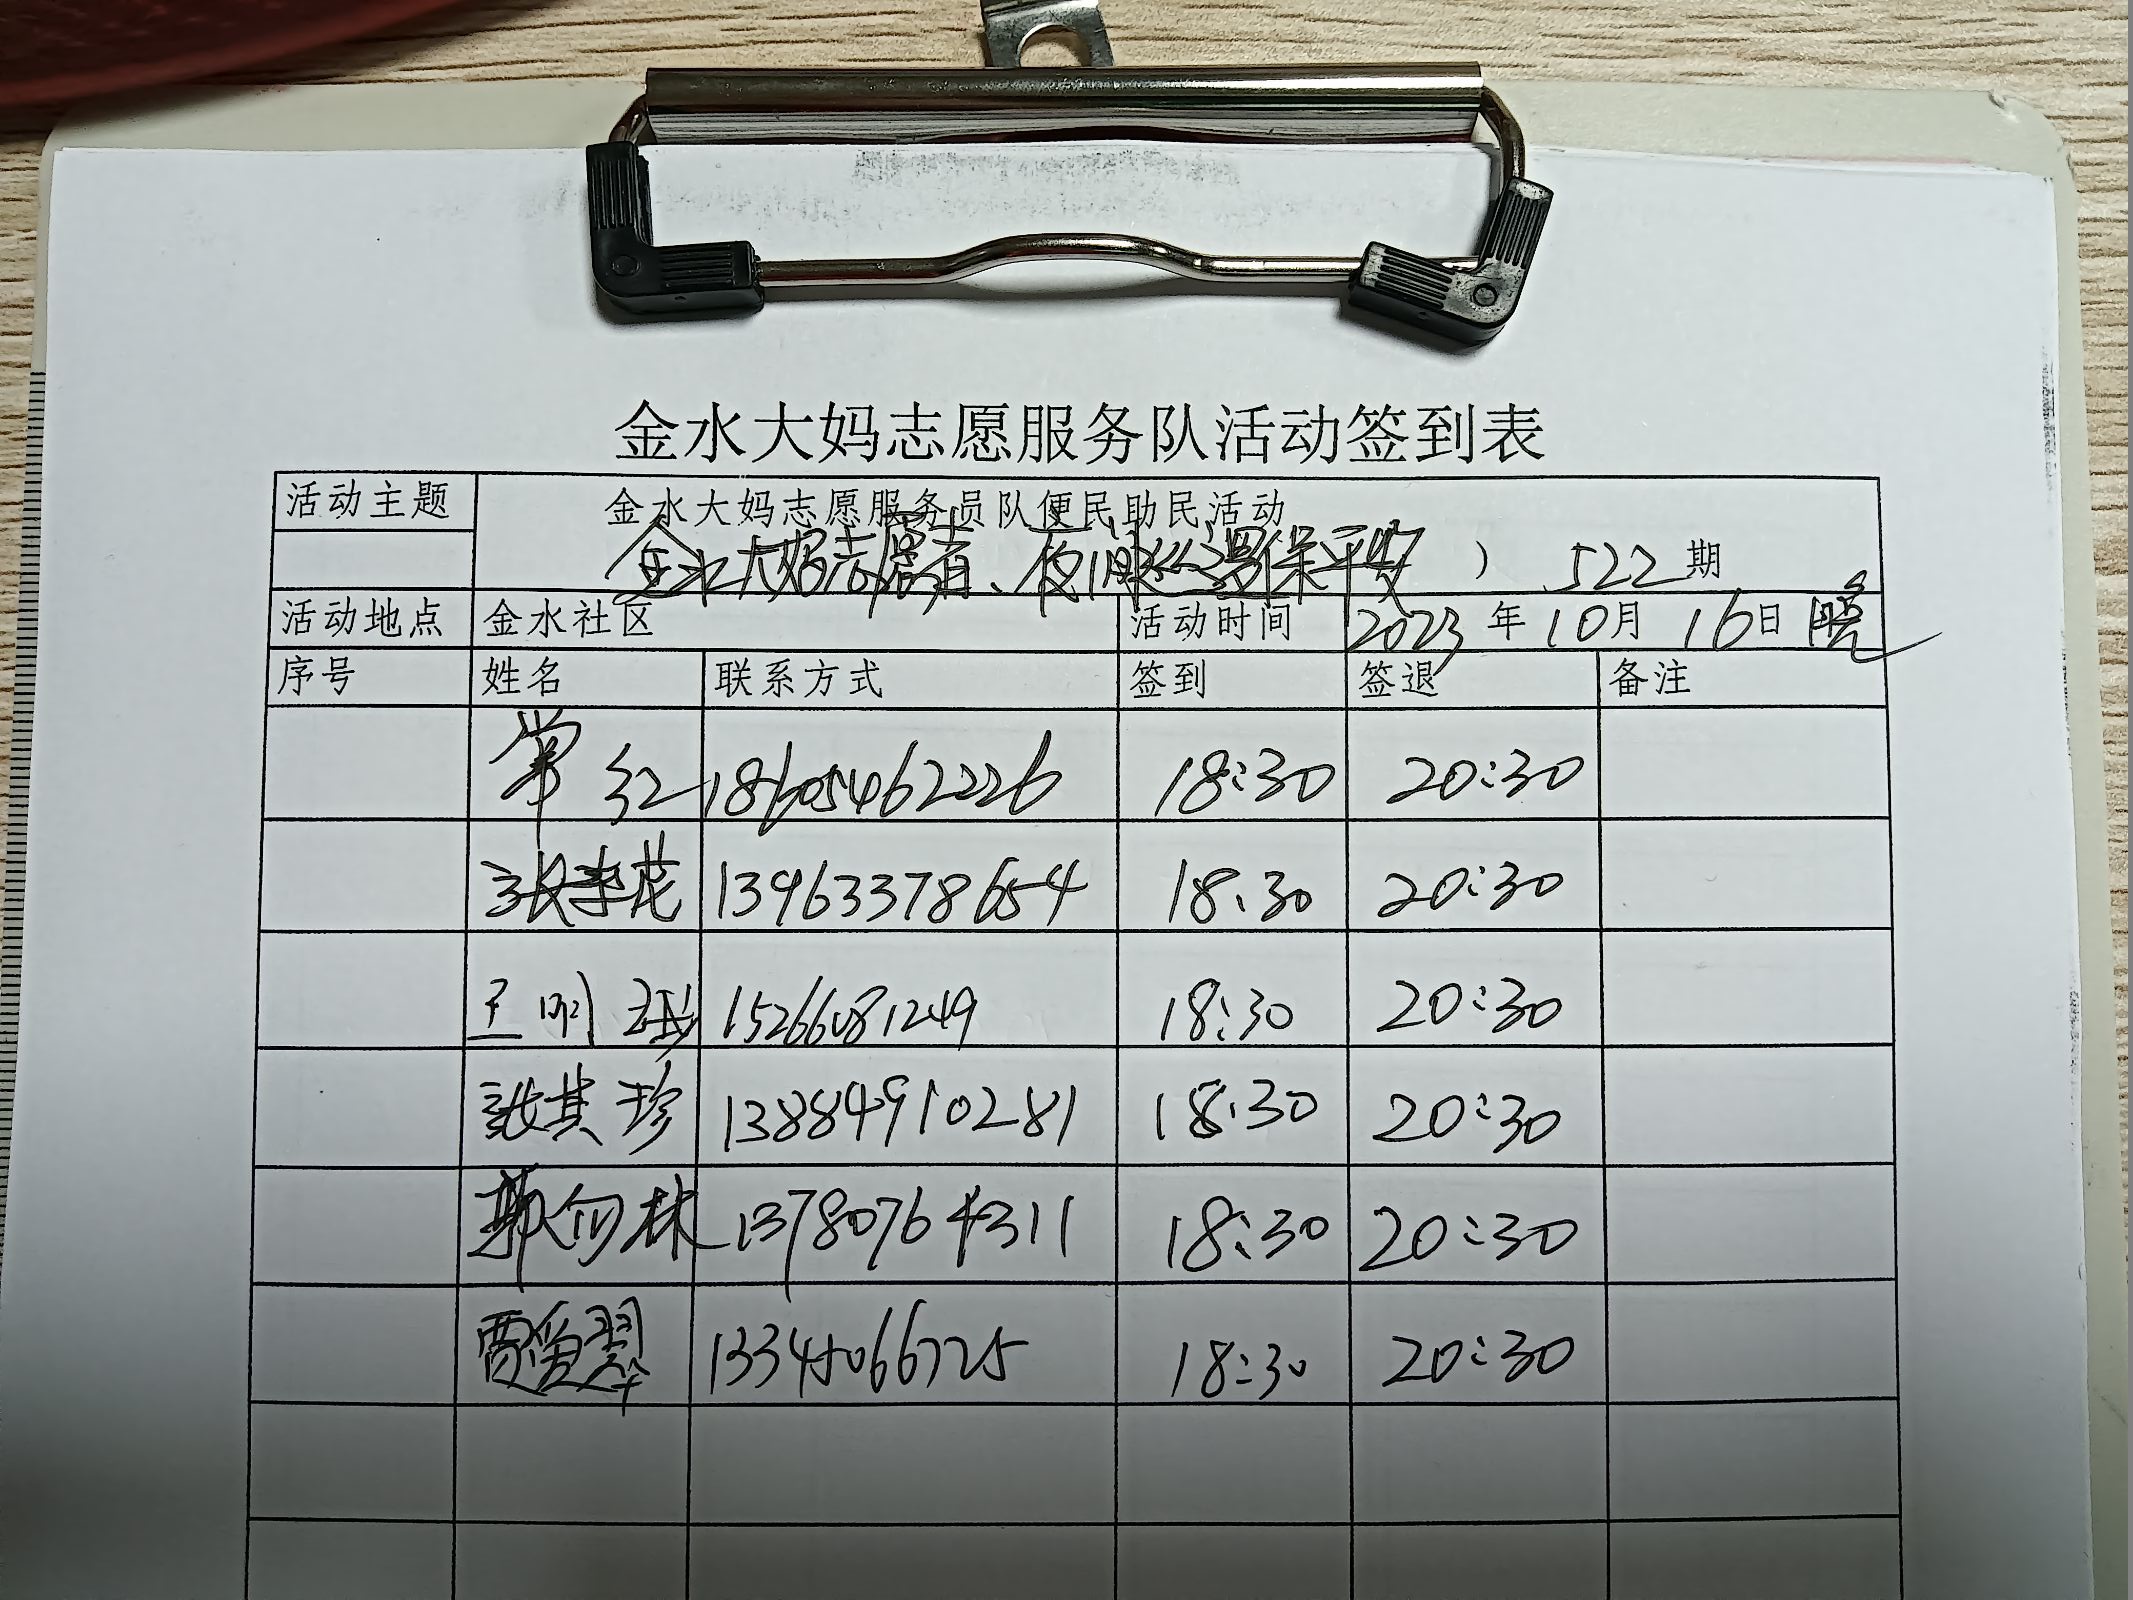 金水大妈志愿服务队活动签到表
活动主题 金水大妈志愿服务员队便民助民活动
金水大妈志愿者、夜间巡逻保平安 ） 522期
活动地点 金水社区 活动时间 2023年10月16日 晚
序号 姓名 联系方式 签到 签退 备注
常红 18605462226 18:30 20:30
张李花 13963378654 18:30 20:30
王明 15266081249 18:30 20:30
张其珍 13884910281 18:30 20:30
林 13780764311 18:30 20:30
贾爱翠 13345066725 18:30 20:30